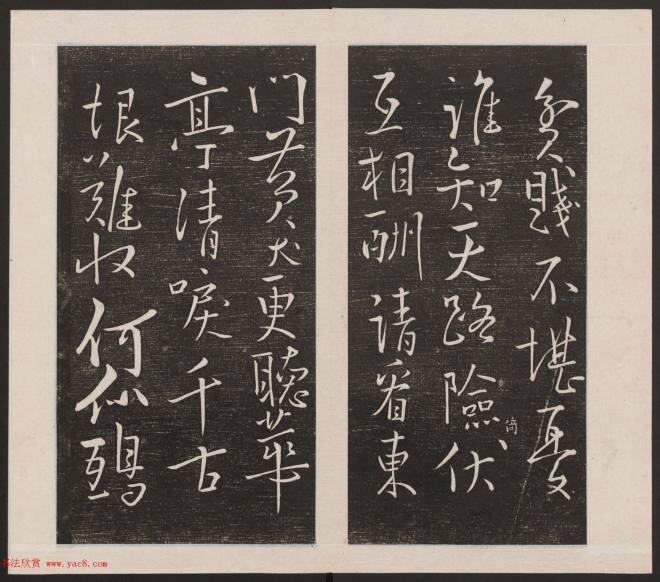 貧賤不堪憂
誰知天路險倚伏
互相酬請看東
門黃犬更聽華
亭清唳千古
恨難收何似鴟
书法欣赏 www.yac8.com